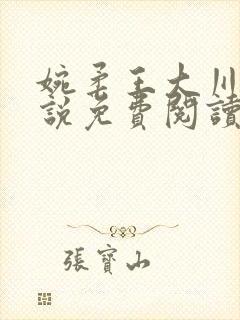 婉柔王大川
說免費閱讀
張寶山